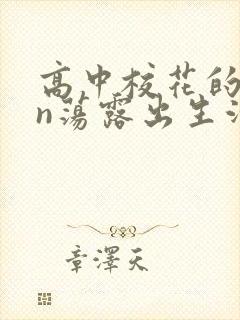 高中校花的
n荡露出生活
章澤天